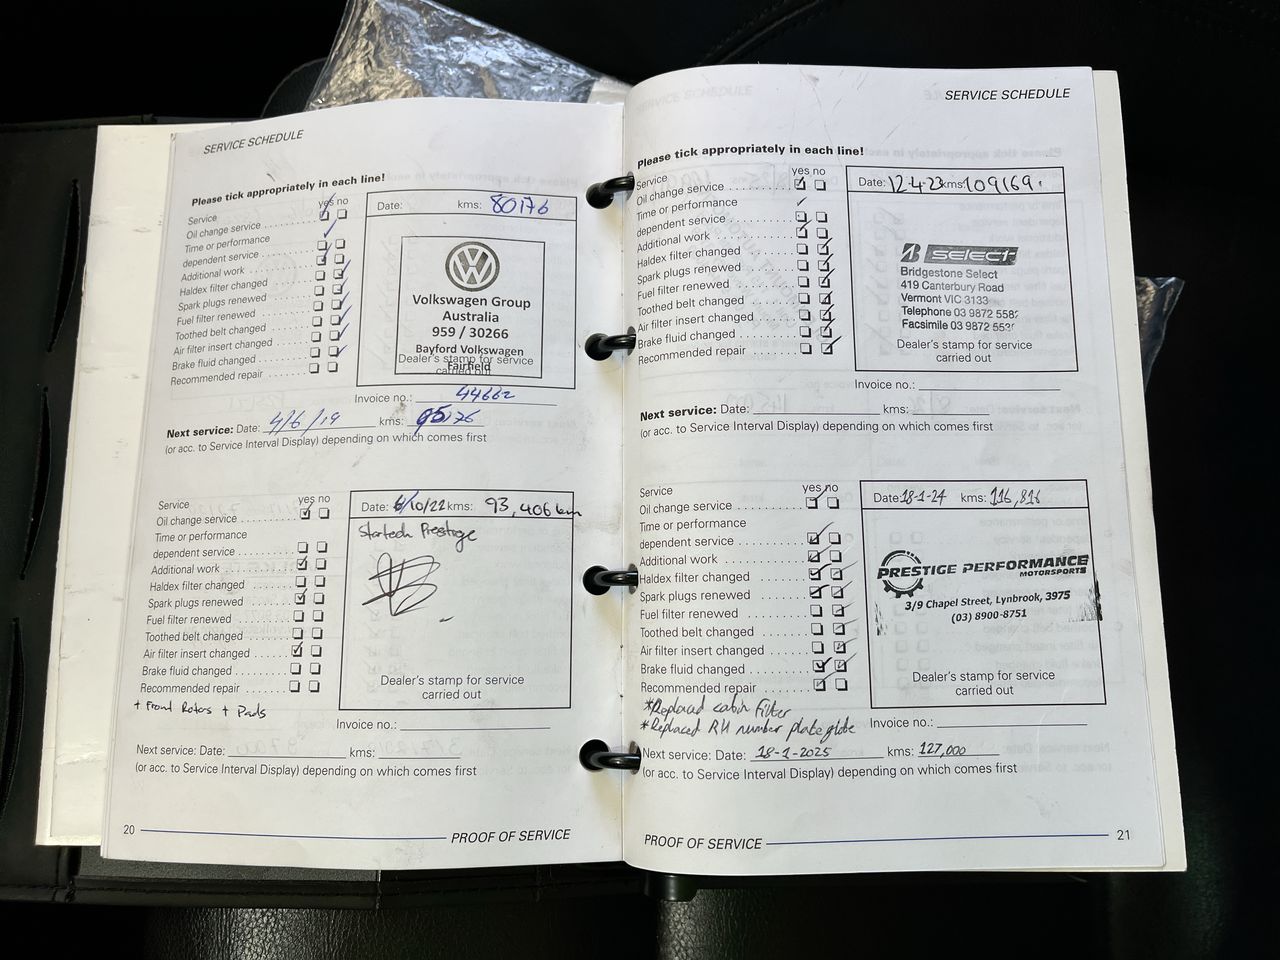 SERVICE SCHEDULE
Please tick appropriately in each line!
yes no
Service
Oil change service
Time or performance
dependent service
Additional work
Haldex filter changed
Spark plugs renewed
Fuel filter renewed
Toothed belt changed
Air filter insert changed
Brake fluid changed
Recommended repair
Date: kms: 80176
Volkswagen Group
Australia
959 / 30266
Bayford Volkswagen
Fairfield
Dealer's stamp for service
carried out
Invoice no.: 44662
Next service: Date: 4/6/19 kms: 95176
(or acc. to Service Interval Display) depending on which comes first
Service
yes no
Oil change service
Time or performance
dependent service
Additional work
Haldex filter changed
Spark plugs renewed
Fuel filter renewed
Toothed belt changed
Air filter insert changed
Brake fluid changed
Recommended repair
+ Front Rotors + Pads
Date: 6/10/22 kms: 93,406 km
Startech Prestige
Dealer's stamp for service
carried out
Invoice no.:
Next service: Date: kms:
(or acc. to Service Interval Display) depending on which comes first
20
PROOF OF SERVICE
SERVICE SCHEDULE
Please tick appropriately in each line!
yes no
Service
Oil change service
Time or performance
dependent service
Additional work
Haldex filter changed
Spark plugs renewed
Fuel filter renewed
Toothed belt changed
Air filter insert changed
Brake fluid changed
Recommended repair
Date: 12-4-23 kms: 109169.
B SELECT
Bridgestone Select
419 Canterbury Road
Vermont VIC 3133
Telephone 03 9872
Facsimile 03 9872
Dealer's stamp for service
carried out
Invoice no.:
Next service: Date: kms:
(or acc. to Service Interval Display) depending on which comes first
Service
yes no
Oil change service
Time or performance
dependent service
Additional work
Haldex filter changed
Spark plugs renewed
Fuel filter renewed
Toothed belt changed
Air filter insert changed
Brake fluid changed
Recommended repair
*Replaced cabin filter
*Replaced RH number plate globe
Date: 18-1-24 kms: 116,816
PRESTIGE PERFORMANCE
MOTORSPORTS
3/9 Chapel Street, Lynbrook, 3975
(03) 8900-8751
Dealer's stamp for service
carried out
Invoice no.:
Next service: Date: 18-1-2025 kms: 127,000
(or acc. to Service Interval Display) depending on which comes first
PROOF OF SERVICE
21